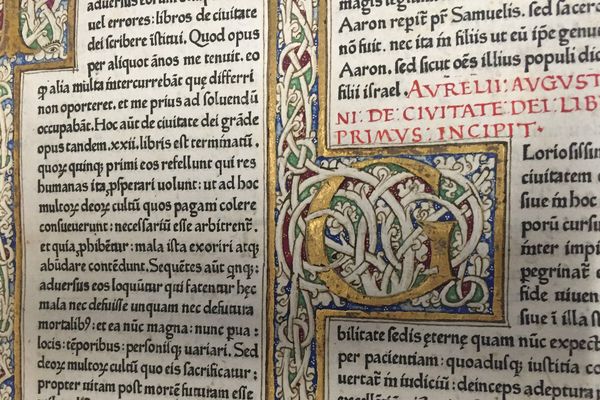 aduersus eorum
uel errores: libros de ciuitate
dei scribere īstitui. Quod opus
per aliquot ānos me tenuit. eo
ꝙ alia multa ītercurrebāt quę differri
non oporteret. et me prius ad soluendū
occupabāt. Hoc aūt de ciuitate dei grāde
opus tandem .xxii. libris est terminatū.
quoꝝ quinqꝫ primi eos refellunt qui res
humanas ita ꝓsperari uolunt: ut ad hoc
multoꝝ deoꝝ cultū quos pagani colere
consueuerunt: necessariū esse arbitrent᷑.
et quia ꝓhibent᷑: mala ista exoriri atqꝫ
abūdare contēdunt. Sequētes aūt qnqꝫ:
aduersus eos loquūtur qui fatentur hęc
mala nec defuisse unquam nec defutura
mortalibꝰ: et ea nūc magna: nunc pua:
locis: tēporibus: personisqꝫ uariari. Sed
deoꝝ multoꝝ cultū quo eis sacrificatur:
propter uitam post mortē futuram esse
magis
Aaron repīt pr̄ Samuelis. sed sacerd
nō fuit. nec ita in filiis ut eū ip̄e genu
Aaron. sed sicut oēs illius populi dic
filii israel. AVRELII: AVGVST
NI: DE: CIVITATE: DEI: LIB
PRIMVS: INCIPIT·
GLoriosissi
ciuitatem
siue in hoc
porū cursu
inter impi
pegrinat᷑ e
fide uiuen
siue ī illa st
bilitate sedis ęternę quam nūc expect
per pacientiam: quoadusqꝫ iustitia co
uertat᷑ in iudiciū: deinceps adeptura p